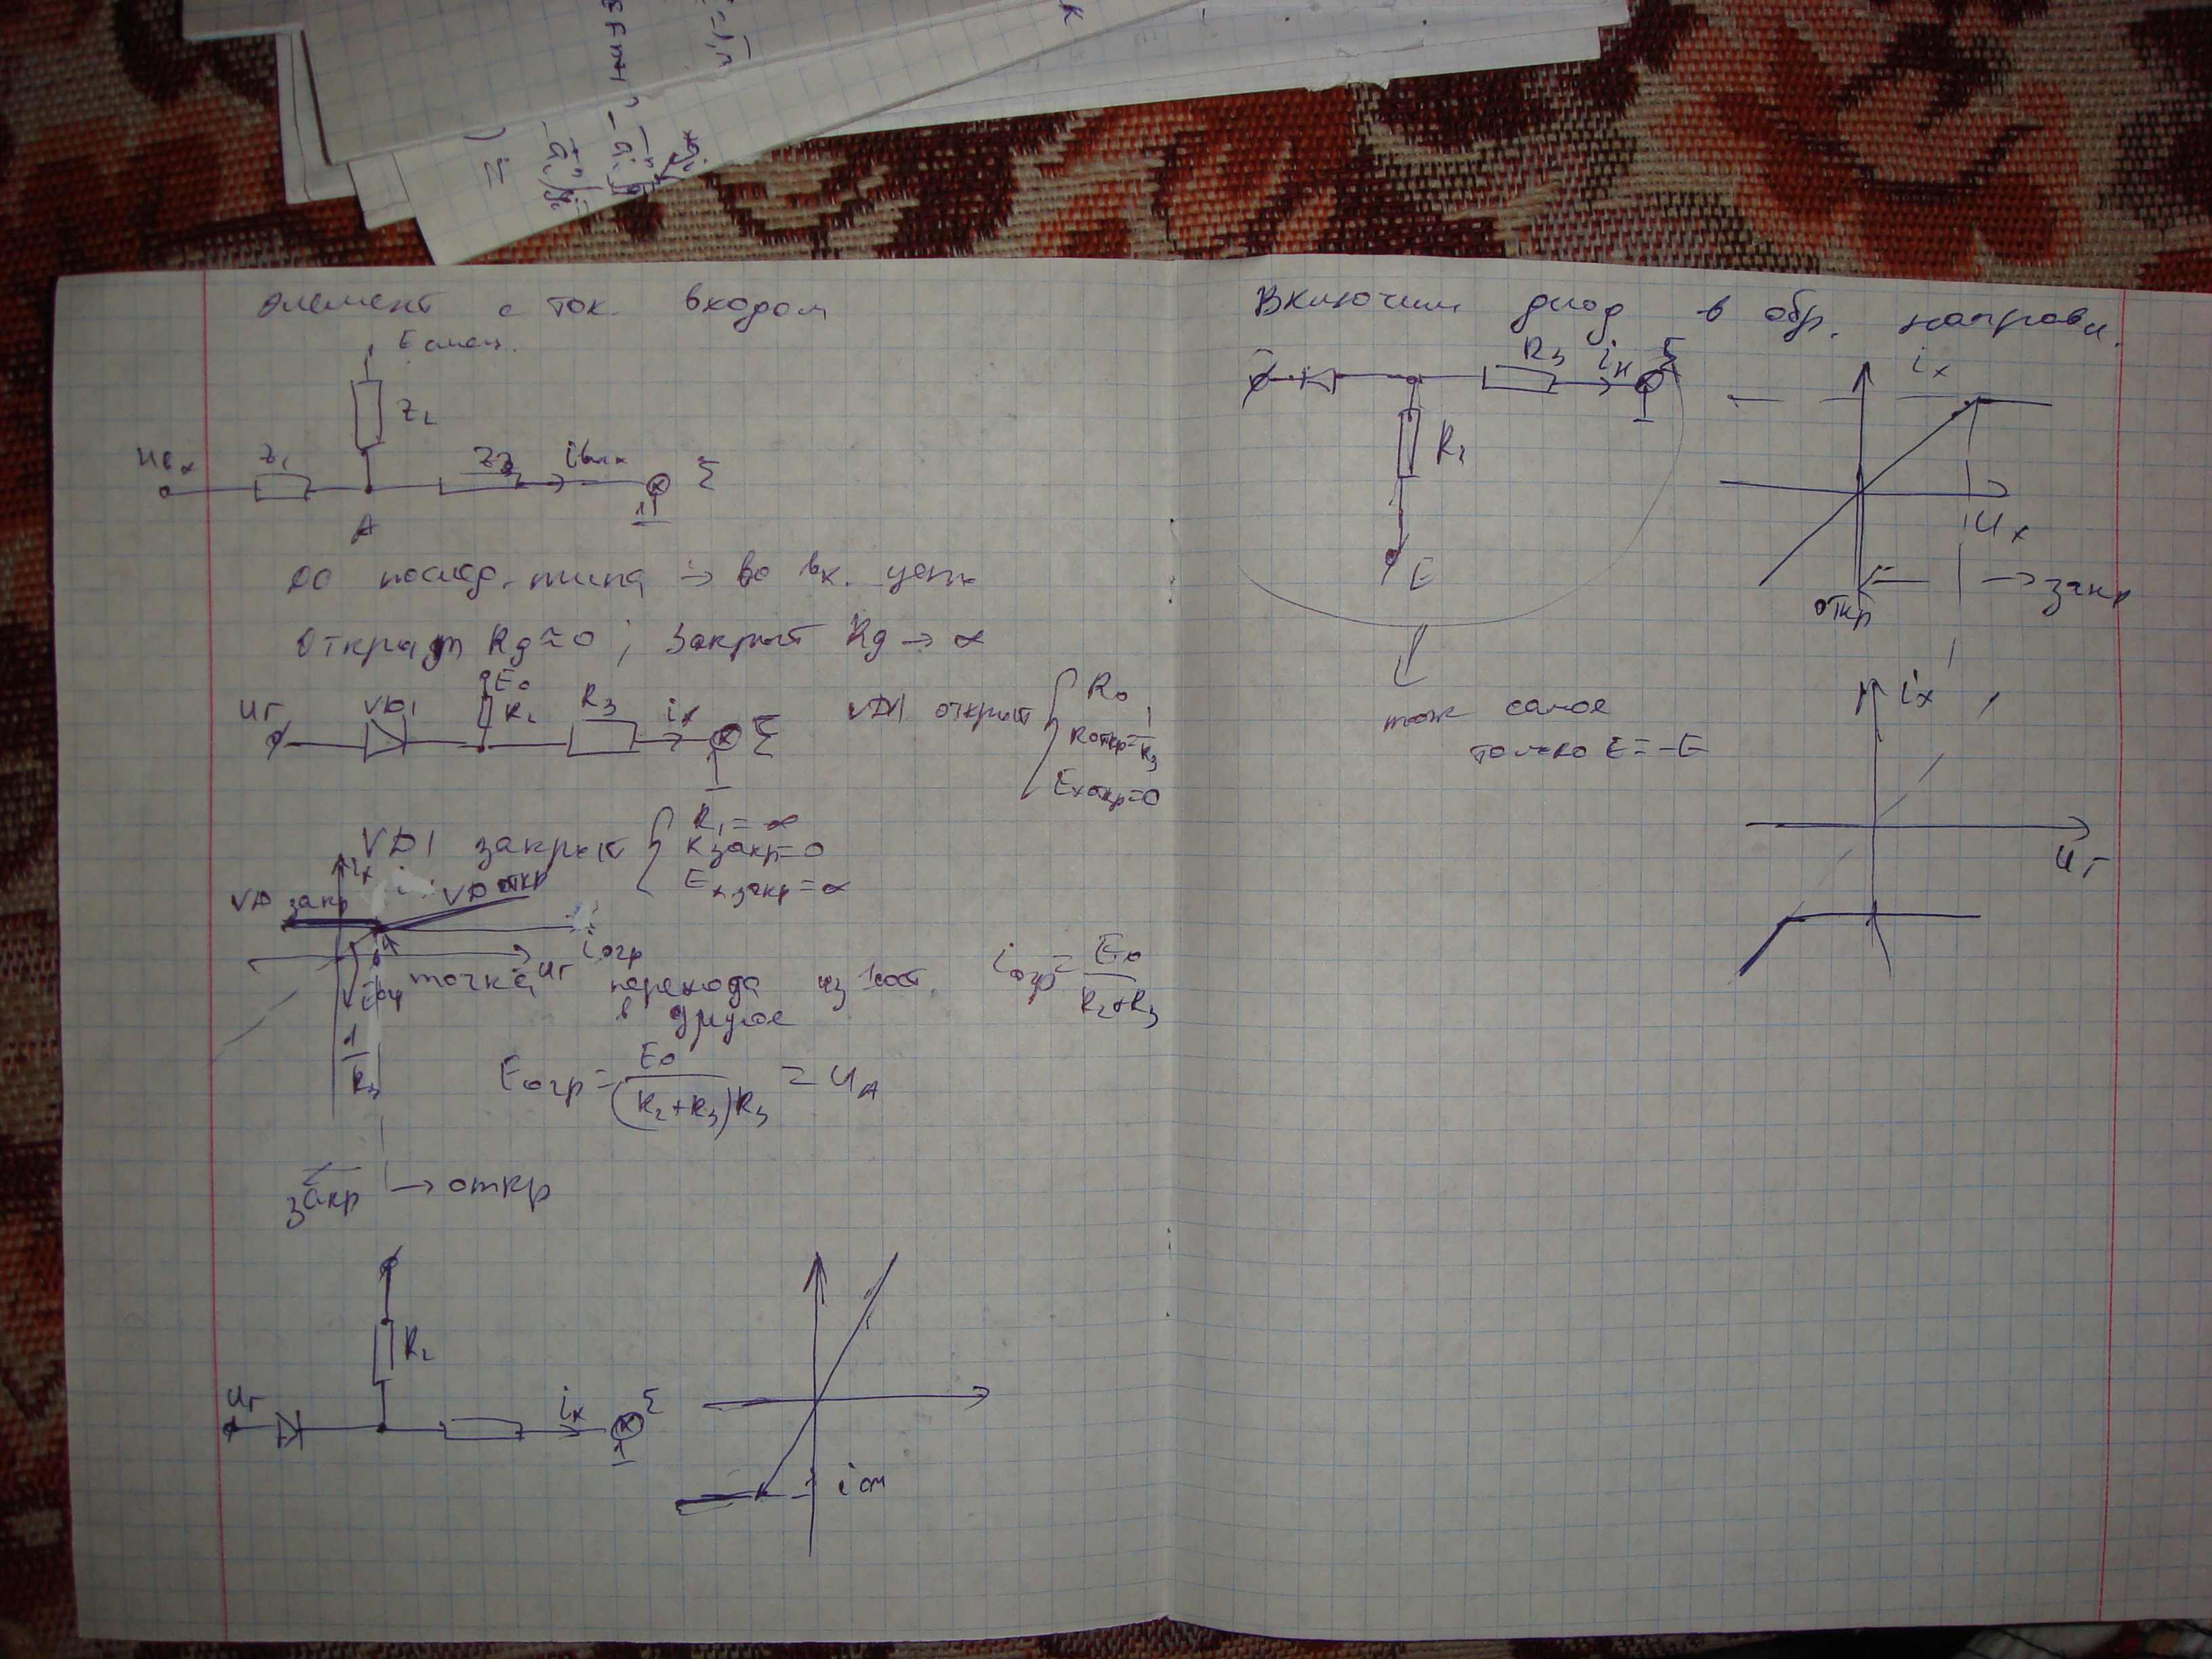 Элемент с ток. входом
E смещ.
Z₂
Uвх Z₁ Z3 iвых Σ
A
DO послед. типа → во вх. цепи
Открыт Rg≈0 ; Закрытт Rg → ∞
Uг VD1 E₀ R₂ R₃ iх Σ
VD1 открыт { R₀
Rоткр=1/R₃
Eхоткр=0
VD1 закрыт { R₁=∞
Kзакр=0
Eхзакр=∞
iх
VD закр VD откр
iогр
Eогр точка Uг перехода из 1сост.
в другое
iогр=E₀/(R₂+R₃)
1/R₃
Eогр=E₀/(R₂+R₃)R₃ = UА
закр → откр
R₂
Uг iх Σ
iсм
Включим диод в обр. направл.
R₃ iх Σ
R₂
E
iх
Uх
откр → закр
тож самое
только E=-E
iх
Uг